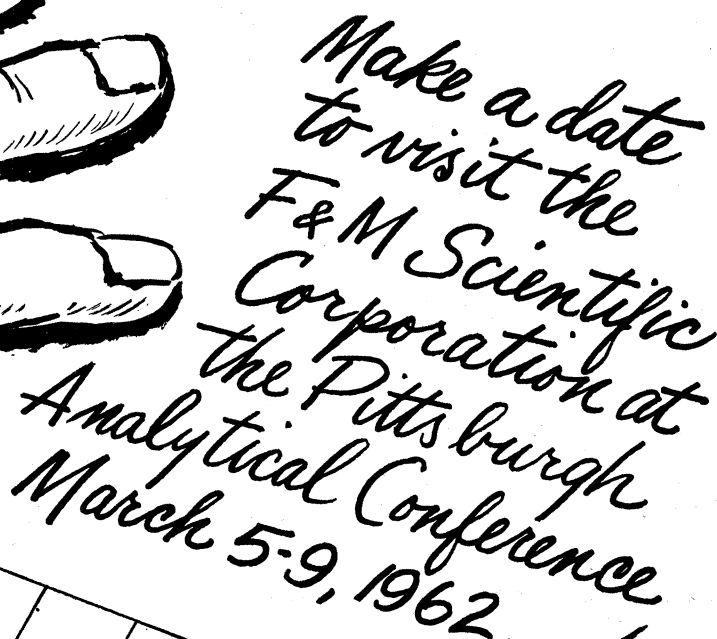 Make a date
to visit the
F & M Scientific
Corporation at
the Pittsburgh
Analytical Conference
March 5-9, 1962